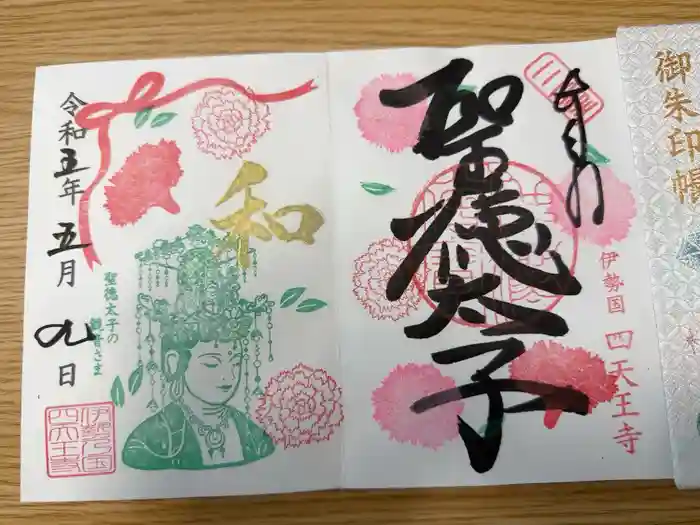 奉拝
聖徳太子
伊勢国 四天王寺
令和五年五月九日
和
聖徳太子の
観音さま
伊勢国
四天王寺
御朱印帳